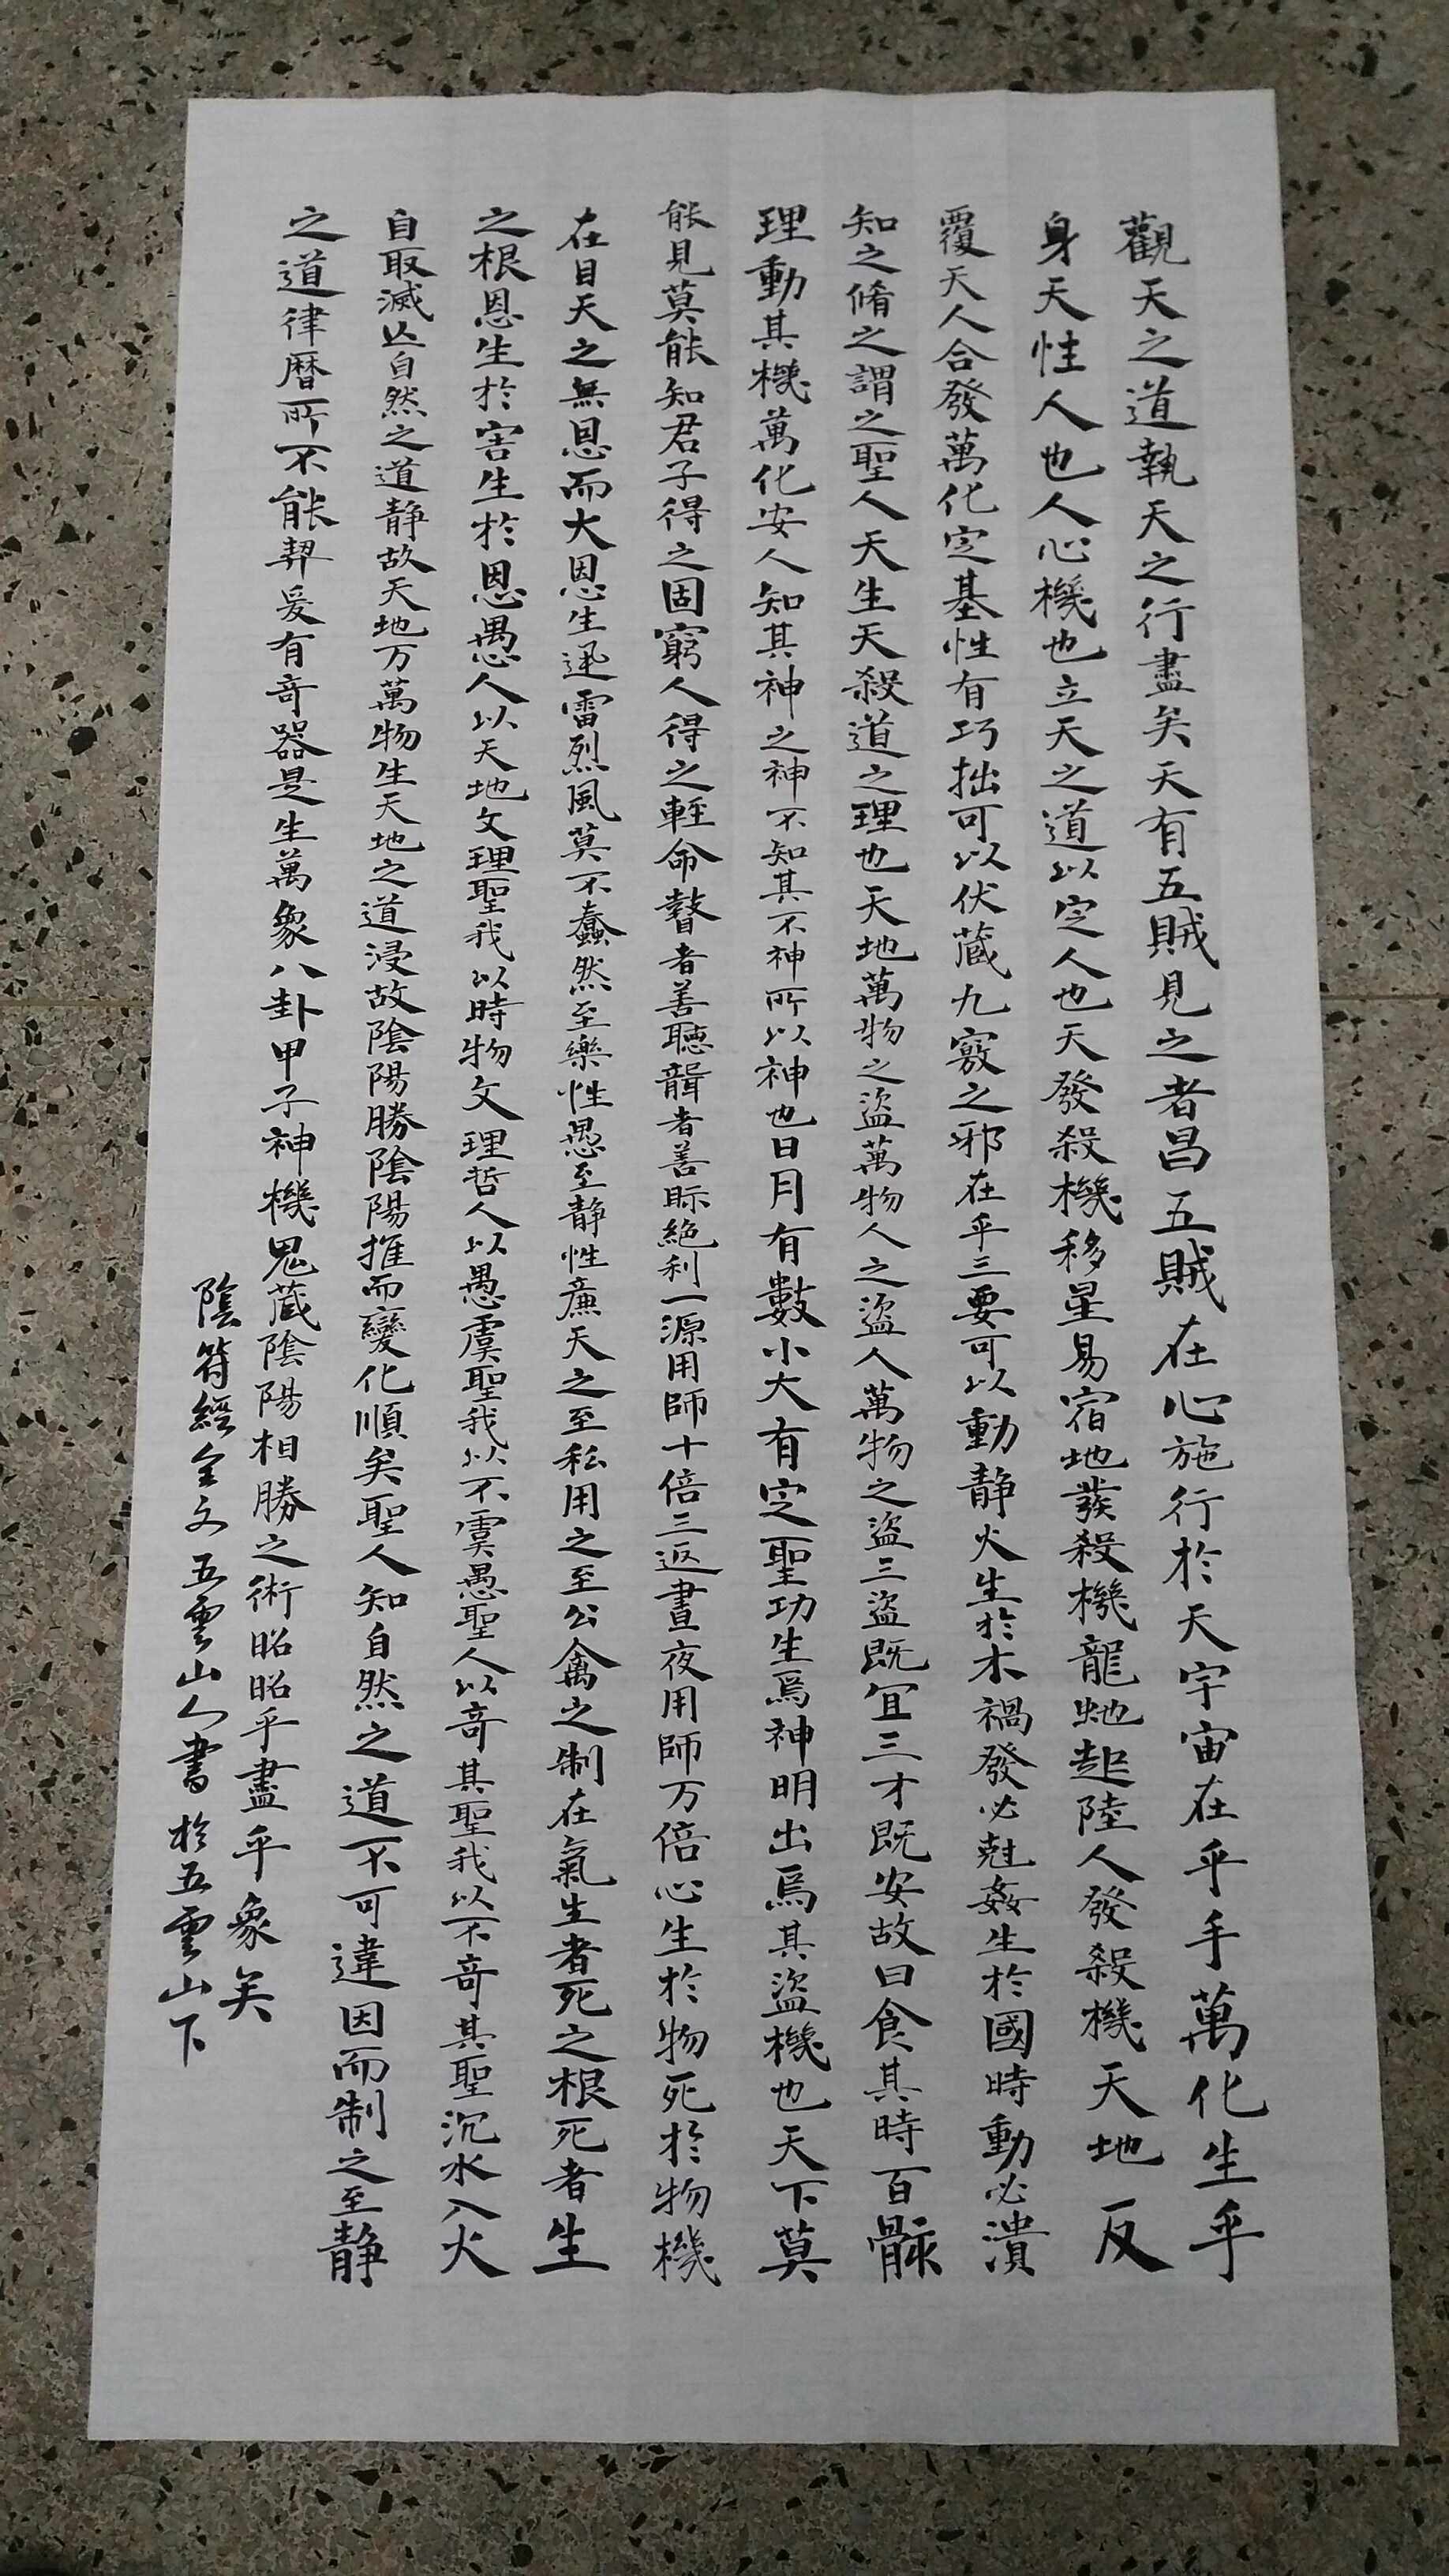 觀天之道執天之行盡矣天有五賊見之者昌五賊在心施行於天宇宙在乎手萬化生乎
身天性人也人心機也立天之道以定人也天發殺機移星易宿地發殺機龍虵起陸人發殺機天地反
覆天人合發萬化定基性有巧拙可以伏藏九竅之邪在乎三要可以動静火生於木禍發必尅姦生於國時動必潰
知之脩之謂之聖人天生天殺道之理也天地萬物之盜萬物人之盜人萬物之盜三盜既宜三才既安故曰食其時百骸
理動其機萬化安人知其神之神不知其不神所以神也日月有數小大有定聖功生焉神明出焉其盜機也天下莫
能見莫能知君子得之固窮人得之輕命瞽者善聽聾者善眎絕利一源用師十倍三返晝夜用師万倍心生於物死於物機
在目天之無恩而大恩生迅雷烈風莫不蠢然至樂性愚至静性廉天之至私用之至公禽之制在氣生者死之根死者生
之根恩生於害害生於恩愚人以天地文理聖我以時物文理哲人以愚虞聖我以不虞愚聖人以奇其聖我以不奇其聖沉水入火
自取滅亾自然之道静故天地万萬物生天地之道浸故陰陽勝陰陽推而變化順矣聖人知自然之道不可違因而制之至静
之道律曆所不能契爰有奇器是生萬象八卦甲子神機鬼藏陰陽相勝之術昭昭乎盡乎象矣
陰符經全文五雲山人書於五雲山下